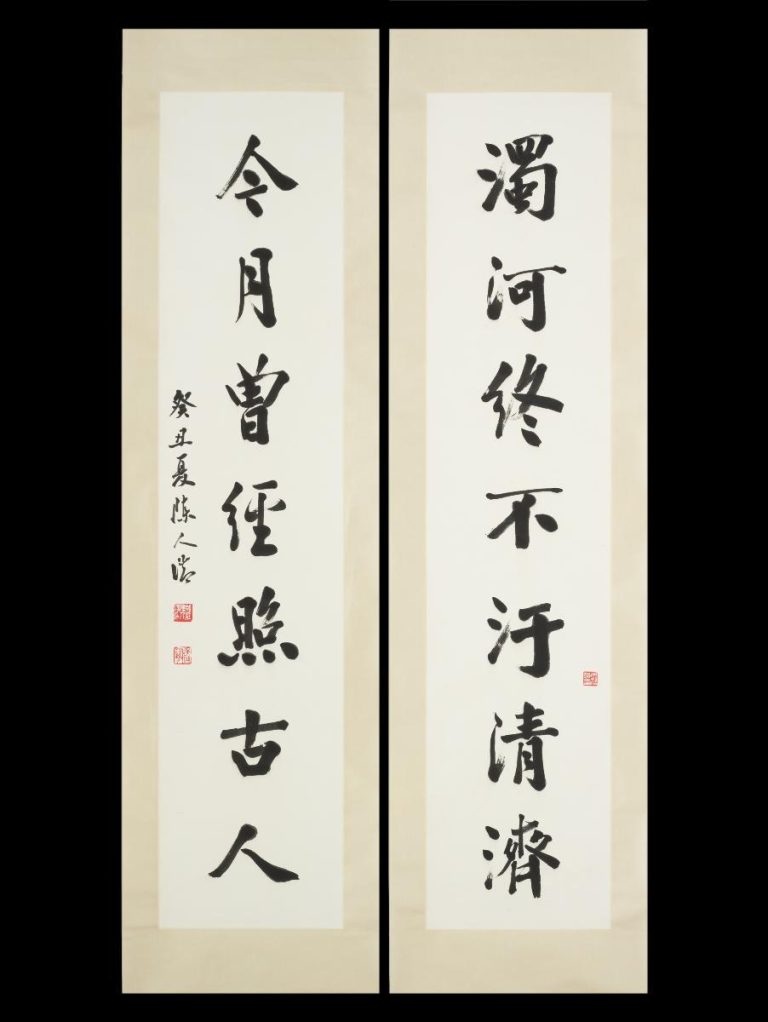 濁河終不汙清濟
今月曾經照古人
癸丑夏陳人浩